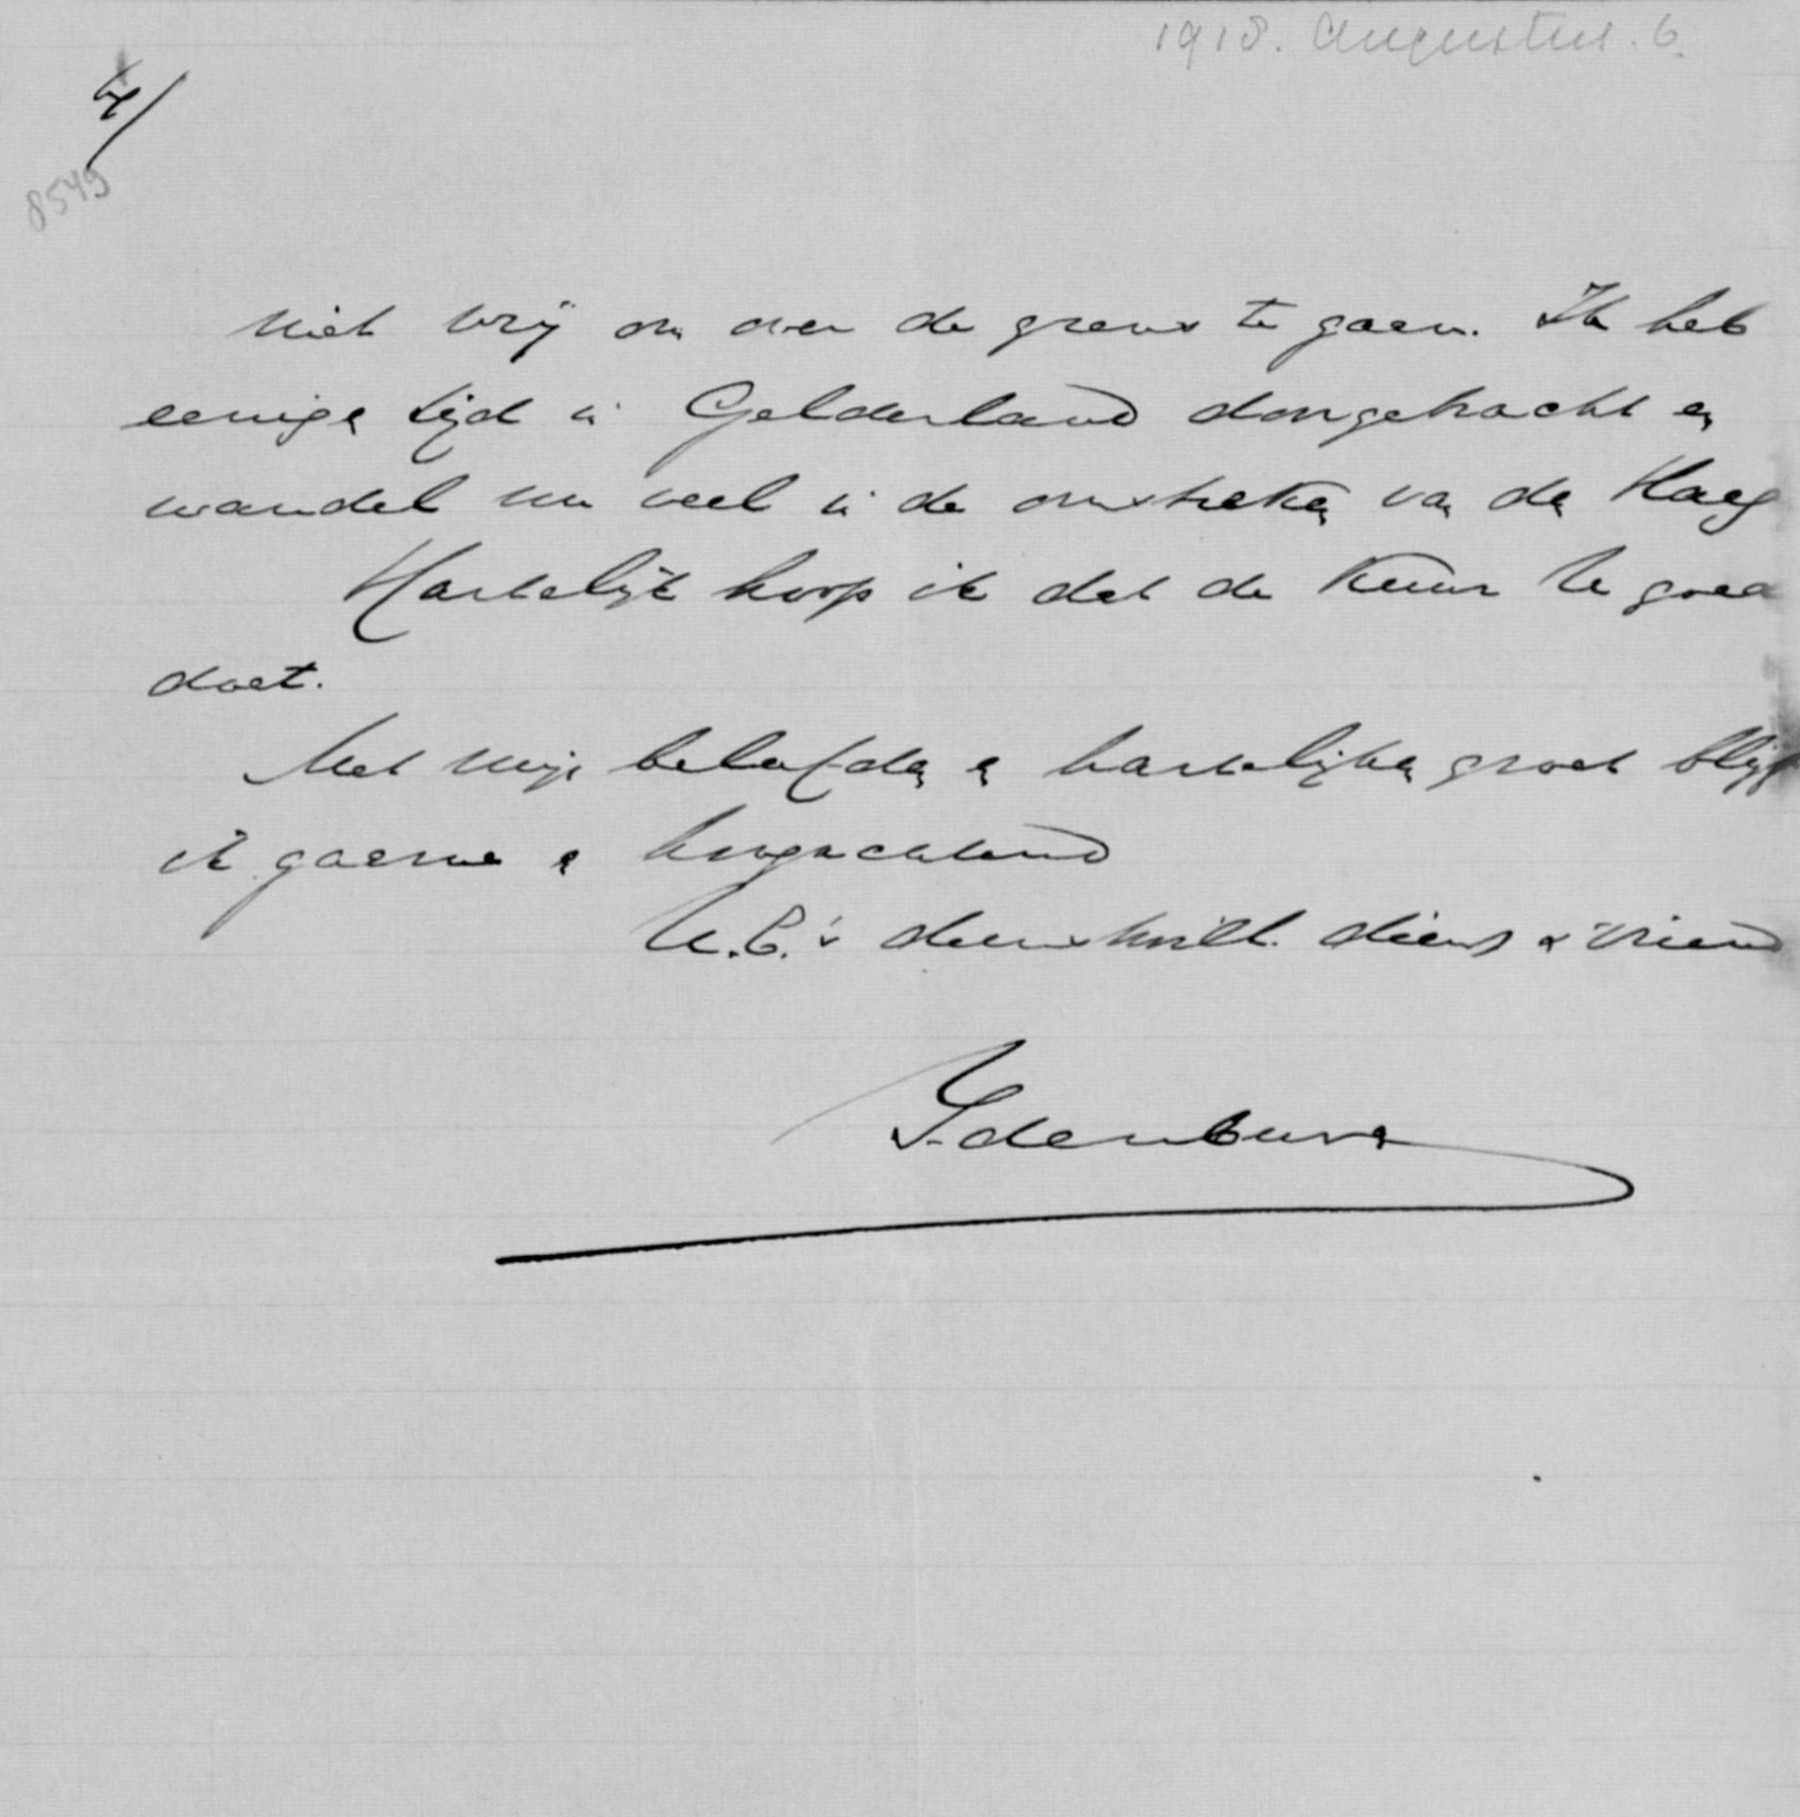 1918. Augustus. 6.
4/
8549
niet vrij om over de grens te gaan. Ik heb
eenige tijd in Gelderland doorgebracht en
wandel nu veel in de omstreken van den Haag
Hartelijk hoop ik dat de Kuur U goed
doet.
Met mijn beleefde en hartelijke groet blijf
ik gaarne en hoogachtend
U.E.'s dienstwill. dienr & vriend
Idenburg